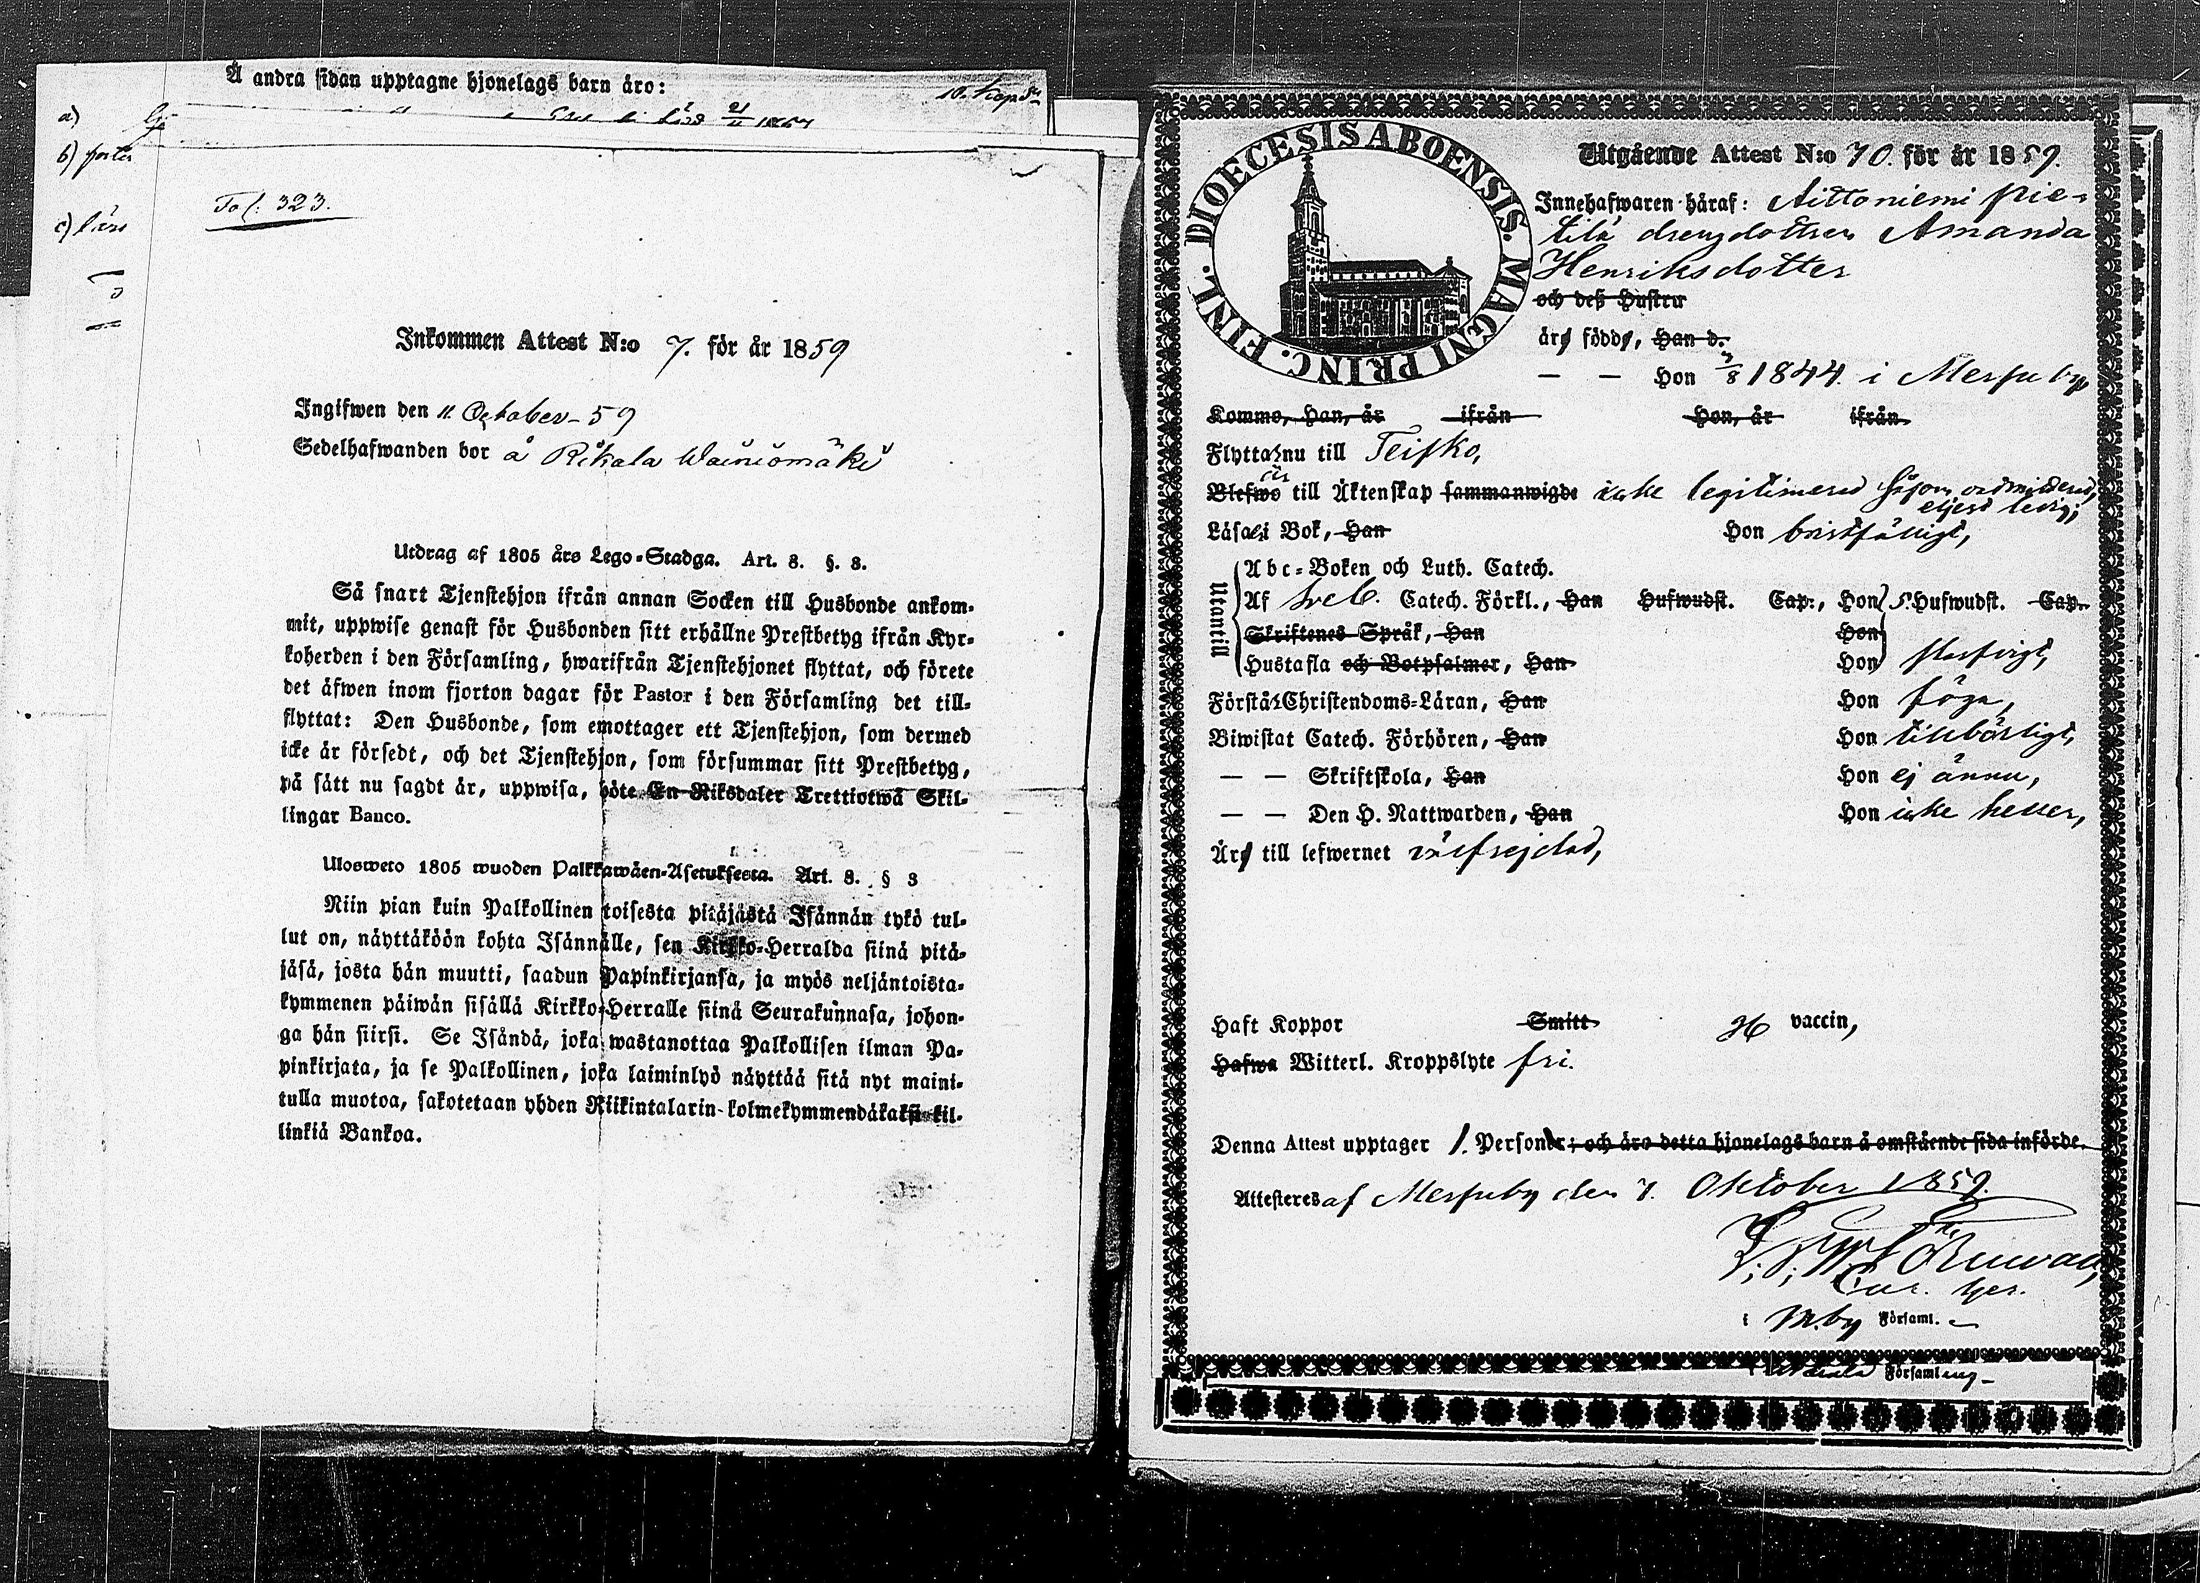 Å andra sidan upptagne hjonelags barn äro:
a)
b)
c)
Fol: 323.
Inkommen Attest N:o 7. för år 1859
Ingifwen den 11 October - 59
Sedelhafwanden bor å Rikala Wäiniömäki
Utdrag af 1805 års Lego-Stadga. Art. 8. §. 3.
Så snart Tjenstehjon ifrån annan Socken till Husbonde ankom-
mit, uppwise genast för Husbonden sitt erhållne Prestbetyg ifrån Kyr-
koherden i den Församling, hwarifrån Tjenstehjonet flyttat, och förete
det äfwen inom fjorton dagar för Pastor i den Församling det till-
flyttat: Den Husbonde, som emottager ett Tjenstehjon, som dermed
icke är försedt, och det Tjenstehjon, som försummar sitt Prestbetyg,
på sätt nu sagdt är, uppwisa, böte En Riksdaler Trettiotwå Skil-
lingar Banco.
Ulosweto 1805 wuoden Palkkawäen-Asetuksesta. Art. 8. § 3
Niin pian kuin Palkollinen toisesta pitäjästä Isännän tykö tul-
lut on, näyttäköön kohta Isännälle, sen Kirkko-Herralda siinä pitä-
jäsä, josta hän muutti, saadun Papinkirjansa, ja myös neljäntoista-
kymmenen päiwän sisällä Kirkko-Herralle siinä Seurakunnasa, johon-
ga hän siirsi. Se Isändä, joka wastanottaa Palkollisen ilman Pa-
pinkirjata, ja se Palkollinen, joka laiminlyö näyttää sitä nyt maini-
tulla muotoa, sakotetaan yhden Riikintalarin kolmekymmendäkaksi kil-
linkiä Bankoa.
DIOECESIS ABOENSIS. MAGNI PRINC. FINL.
Utgående Attest N:o 70. för år 1859.
Innehafwaren häraf: Aittoniemi pie-
tilä drengdottren Amanda
Henriksdotter
och deß Hustru
äro födde, Han d.
— — Hon 7/8 1844. i Messuby
Kommo, Han, år ifrån Hon, år ifrån
Flytta nu till Teisko,
Blefwo är till Äktenskap sammanwigde icke legitimerad såsom oadmitterad,
eljest ledig;
Läsa i Bok, Han Hon bristfälligt,
Utantill
Abc-Boken och Luth. Catech.
Af Sveb. Catech. Förkl., Han Hufwudst. Cap:, Hon 5. Hufwudst. Cap.
Skriftenes Språk, Han Hon
Hustafla och Botpsalmer, Han Hon slarfvigt,
Förstå Christendoms-Läran, Han Hon föga,
Biwistat Catech. Förhören, Han Hon tillbörligt,
— — Skriftskola, Han Hon ej ännu,
— — Den H. Nattwarden, Han Hon icke heller,
Äro till lefwernet välfrejdad,
Haft Koppor Smitt vaccin,
Hafwa Witterl. Kroppslyte fri.
Denna Attest upptager 1. Personer; och äro detta hjonelags barn å omstående sida införde.
Attesteres af Messuby den 7. Oktober 1859.
i M.by Församl.
Församling